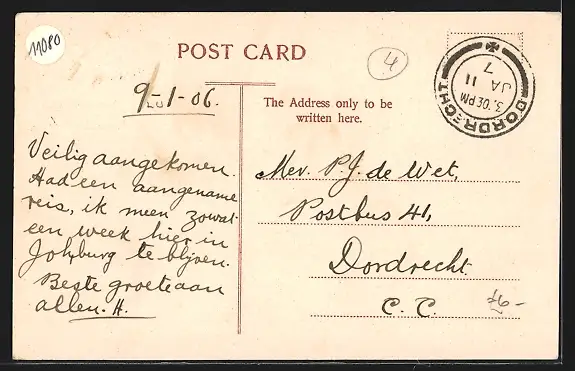 11080
POST CARD
4
DORDRECHT
3.0 PM
JA 11
7
9-1-06.
The Address only to be
written here.
Veilig aangekomen.
Had een aangename
reis, ik meen zowat
een week hier in
Joh,burg te blijven.
Beste groete aan
allen. H.
Mev. P.J. de Wet,
Postbus 41,
Dordrecht
C. C.
£6-